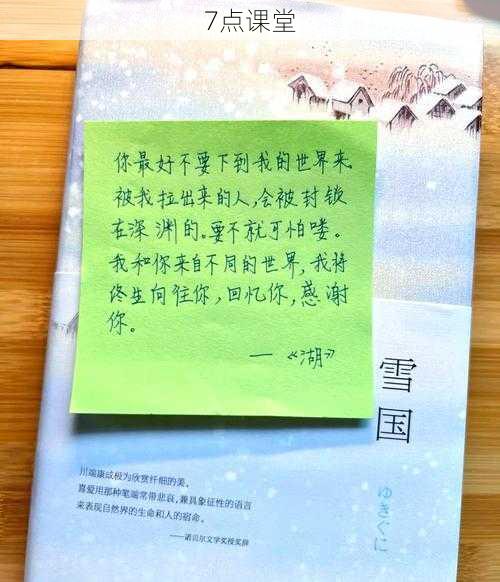 7点课堂
你最好不要下到我的世界来
被我拉出来的人,会被封锁
在深渊的。要不就可怕喽。
我和你来自不同的世界,我将
终生向往你,回忆你,感谢
你。
—《湖》
雪国
ゆきぐに
川端康成极为欣赏纤细的美,
喜爱用那种笔端常带悲哀,兼具象征性的语言
来表现自然界的生命和人的宿命。
——诺贝尔文学奖授奖辞